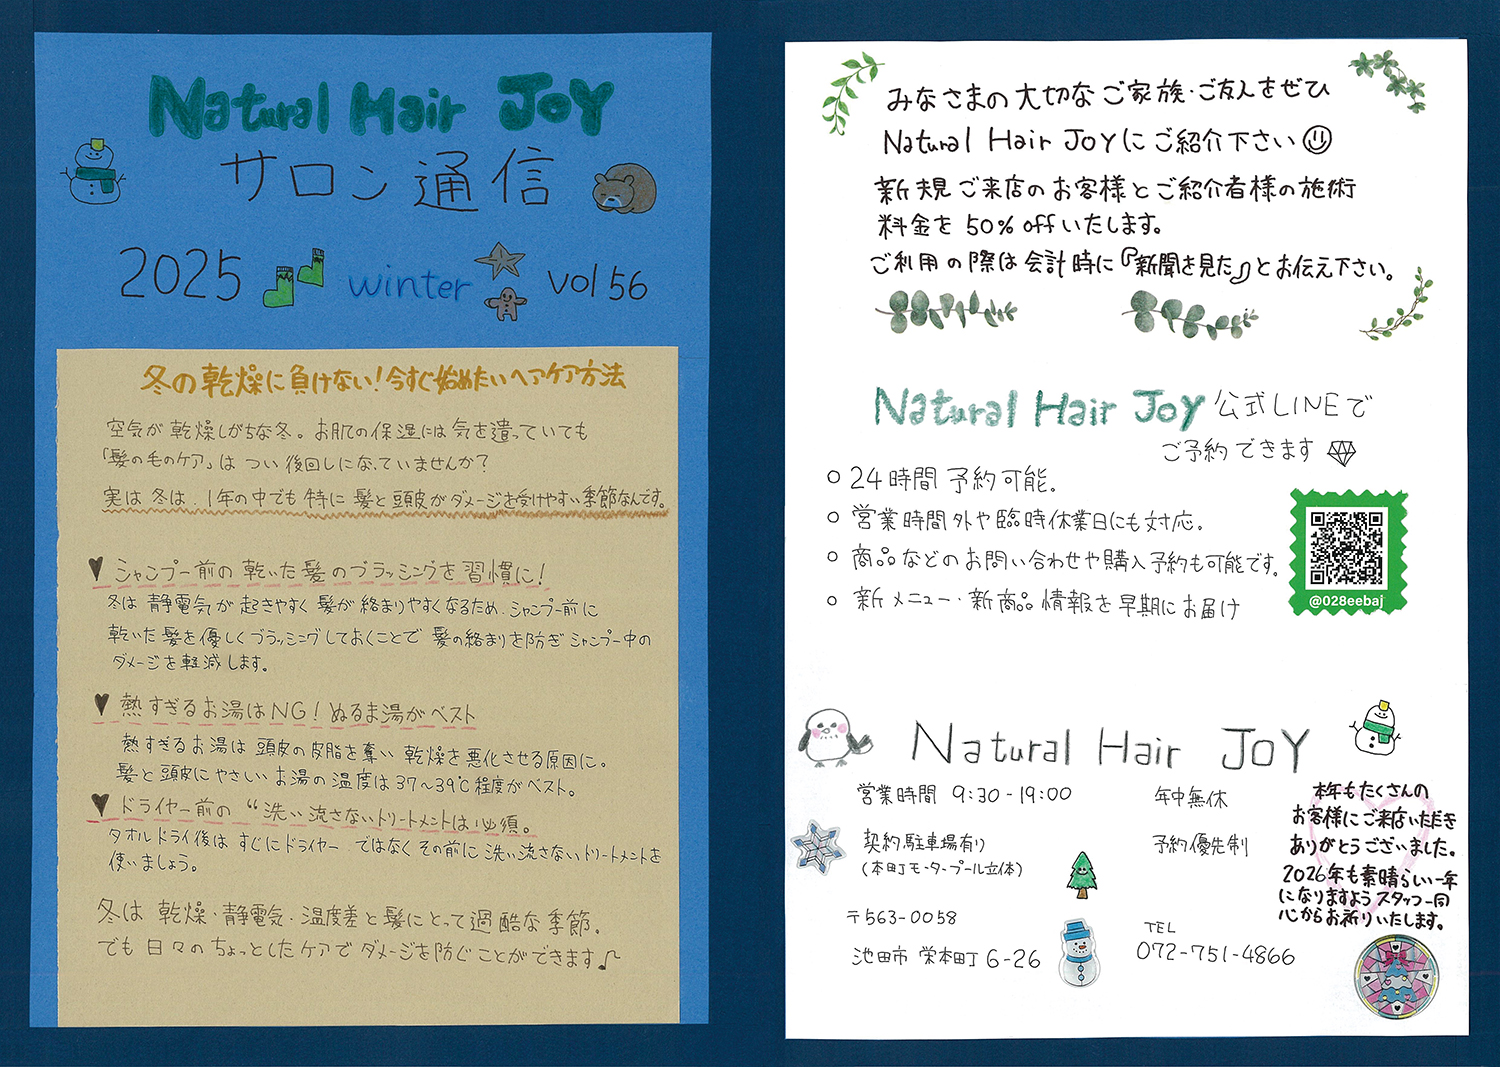 Natural Hair JOY
サロン通信
2025 winter vol 56
冬の乾燥に負けない!今すぐ始めたいヘアケア方法
空気が乾燥しがちな冬。お肌の保湿には気を遣っていても
「髪の毛のケア」はつい後回しになっていませんか?
実は冬は、1年の中でも特に髪と頭皮がダメージを受けやすい季節なんです。
♥ シャンプー前の乾いた髪のブラッシングを習慣に!
冬は静電気が起きやすく髪が絡まりやすくなるため、シャンプー前に
乾いた髪を優しくブラッシングしておくことで髪の絡まりを防ぎシャンプー中の
ダメージを軽減します。
♥ 熱すぎるお湯はNG!ぬるま湯がベスト
熱すぎるお湯は頭皮の皮脂を奪い乾燥を悪化させる原因に。
髪と頭皮にやさしいお湯の温度は37〜39℃程度がベスト。
♥ ドライヤー前の“洗い流さないトリートメントは必須。
タオルドライ後はすぐにドライヤーではなくその前に洗い流さないトリートメントを
使いましょう。
冬は乾燥・静電気・温度差と髪にとって過酷な季節。
でも日々のちょっとしたケアでダメージを防ぐことができます♪
みなさまの大切なご家族・ご友人をぜひ
Natural Hair JOYにご紹介下さい☺
新規ご来店のお客様とご紹介者様の施術
料金を50% offいたします。
ご利用の際は会計時に『新聞を見た』とお伝え下さい。
Natural Hair JOY 公式LINEで
ご予約できます
○ 24時間予約可能。
○ 営業時間外や臨時休業日にも対応。
○ 商品などのお問い合わせや購入予約も可能です。
○ 新メニュー・新商品情報を早期にお届け
@028eebaj
Natural Hair JOY
営業時間 9:30-19:00
年中無休
契約駐車場有り
(本町モータープール立体)
予約優先制
〒563-0058
池田市 栄本町6-26
TEL
072-751-4866
本年もたくさんの
お客様にご来店いただき
ありがとうございました。
2026年も素晴らしい一年
になりますようスタッフ一同
心からお祈りいたします。